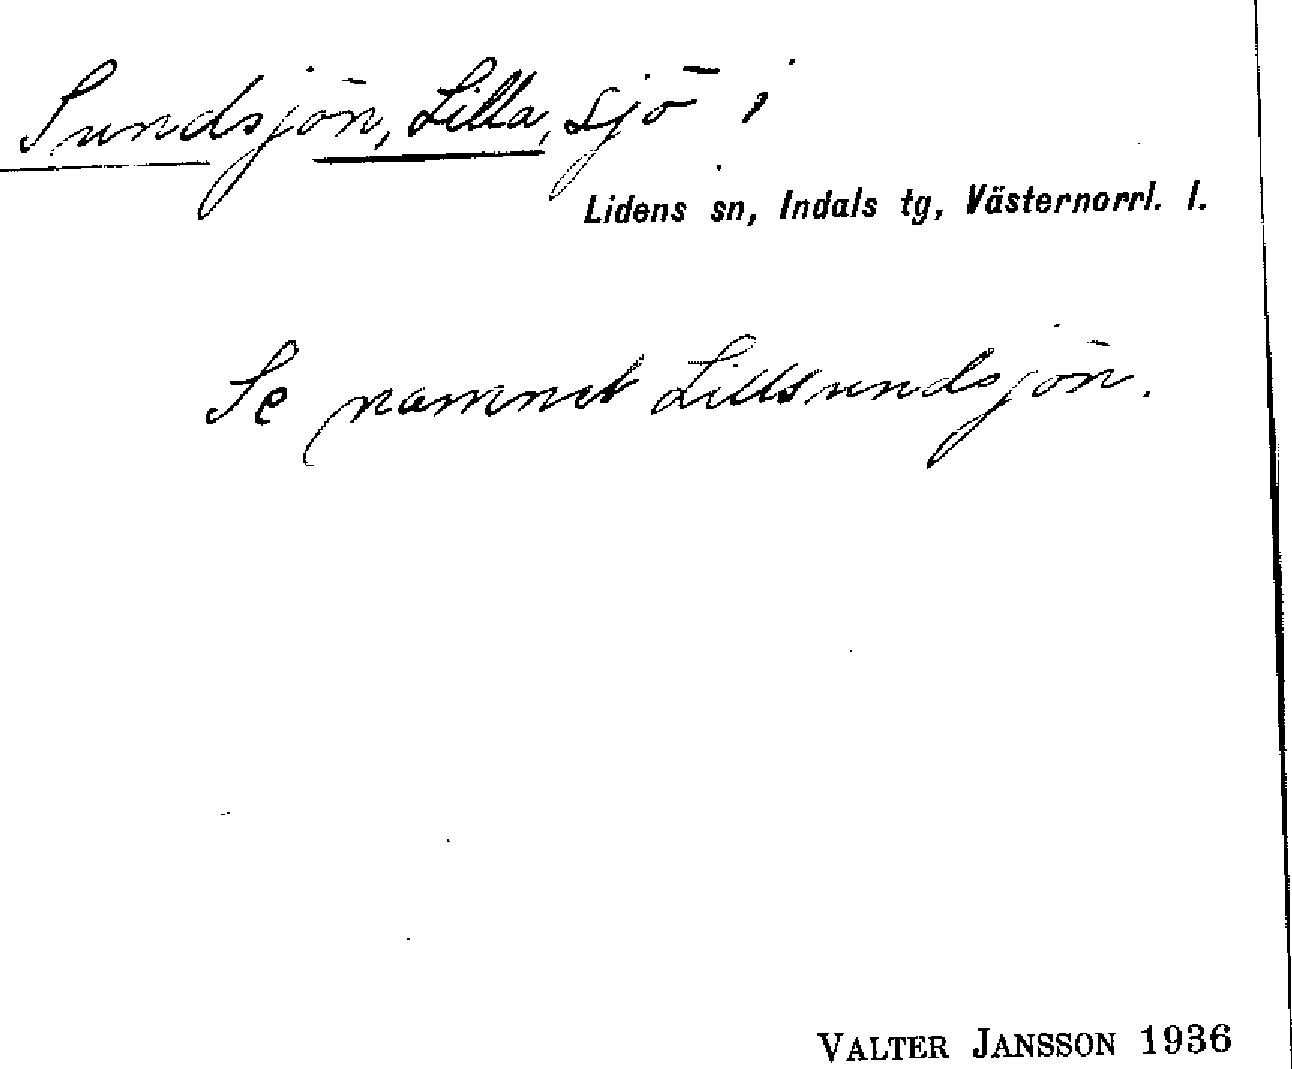 Sundsjön, Lilla, sjö i
Lidens sn, Indals tg, Västernorrl. l.
Se namnet Lillsundsjön.
VALTER JANSSON 1936